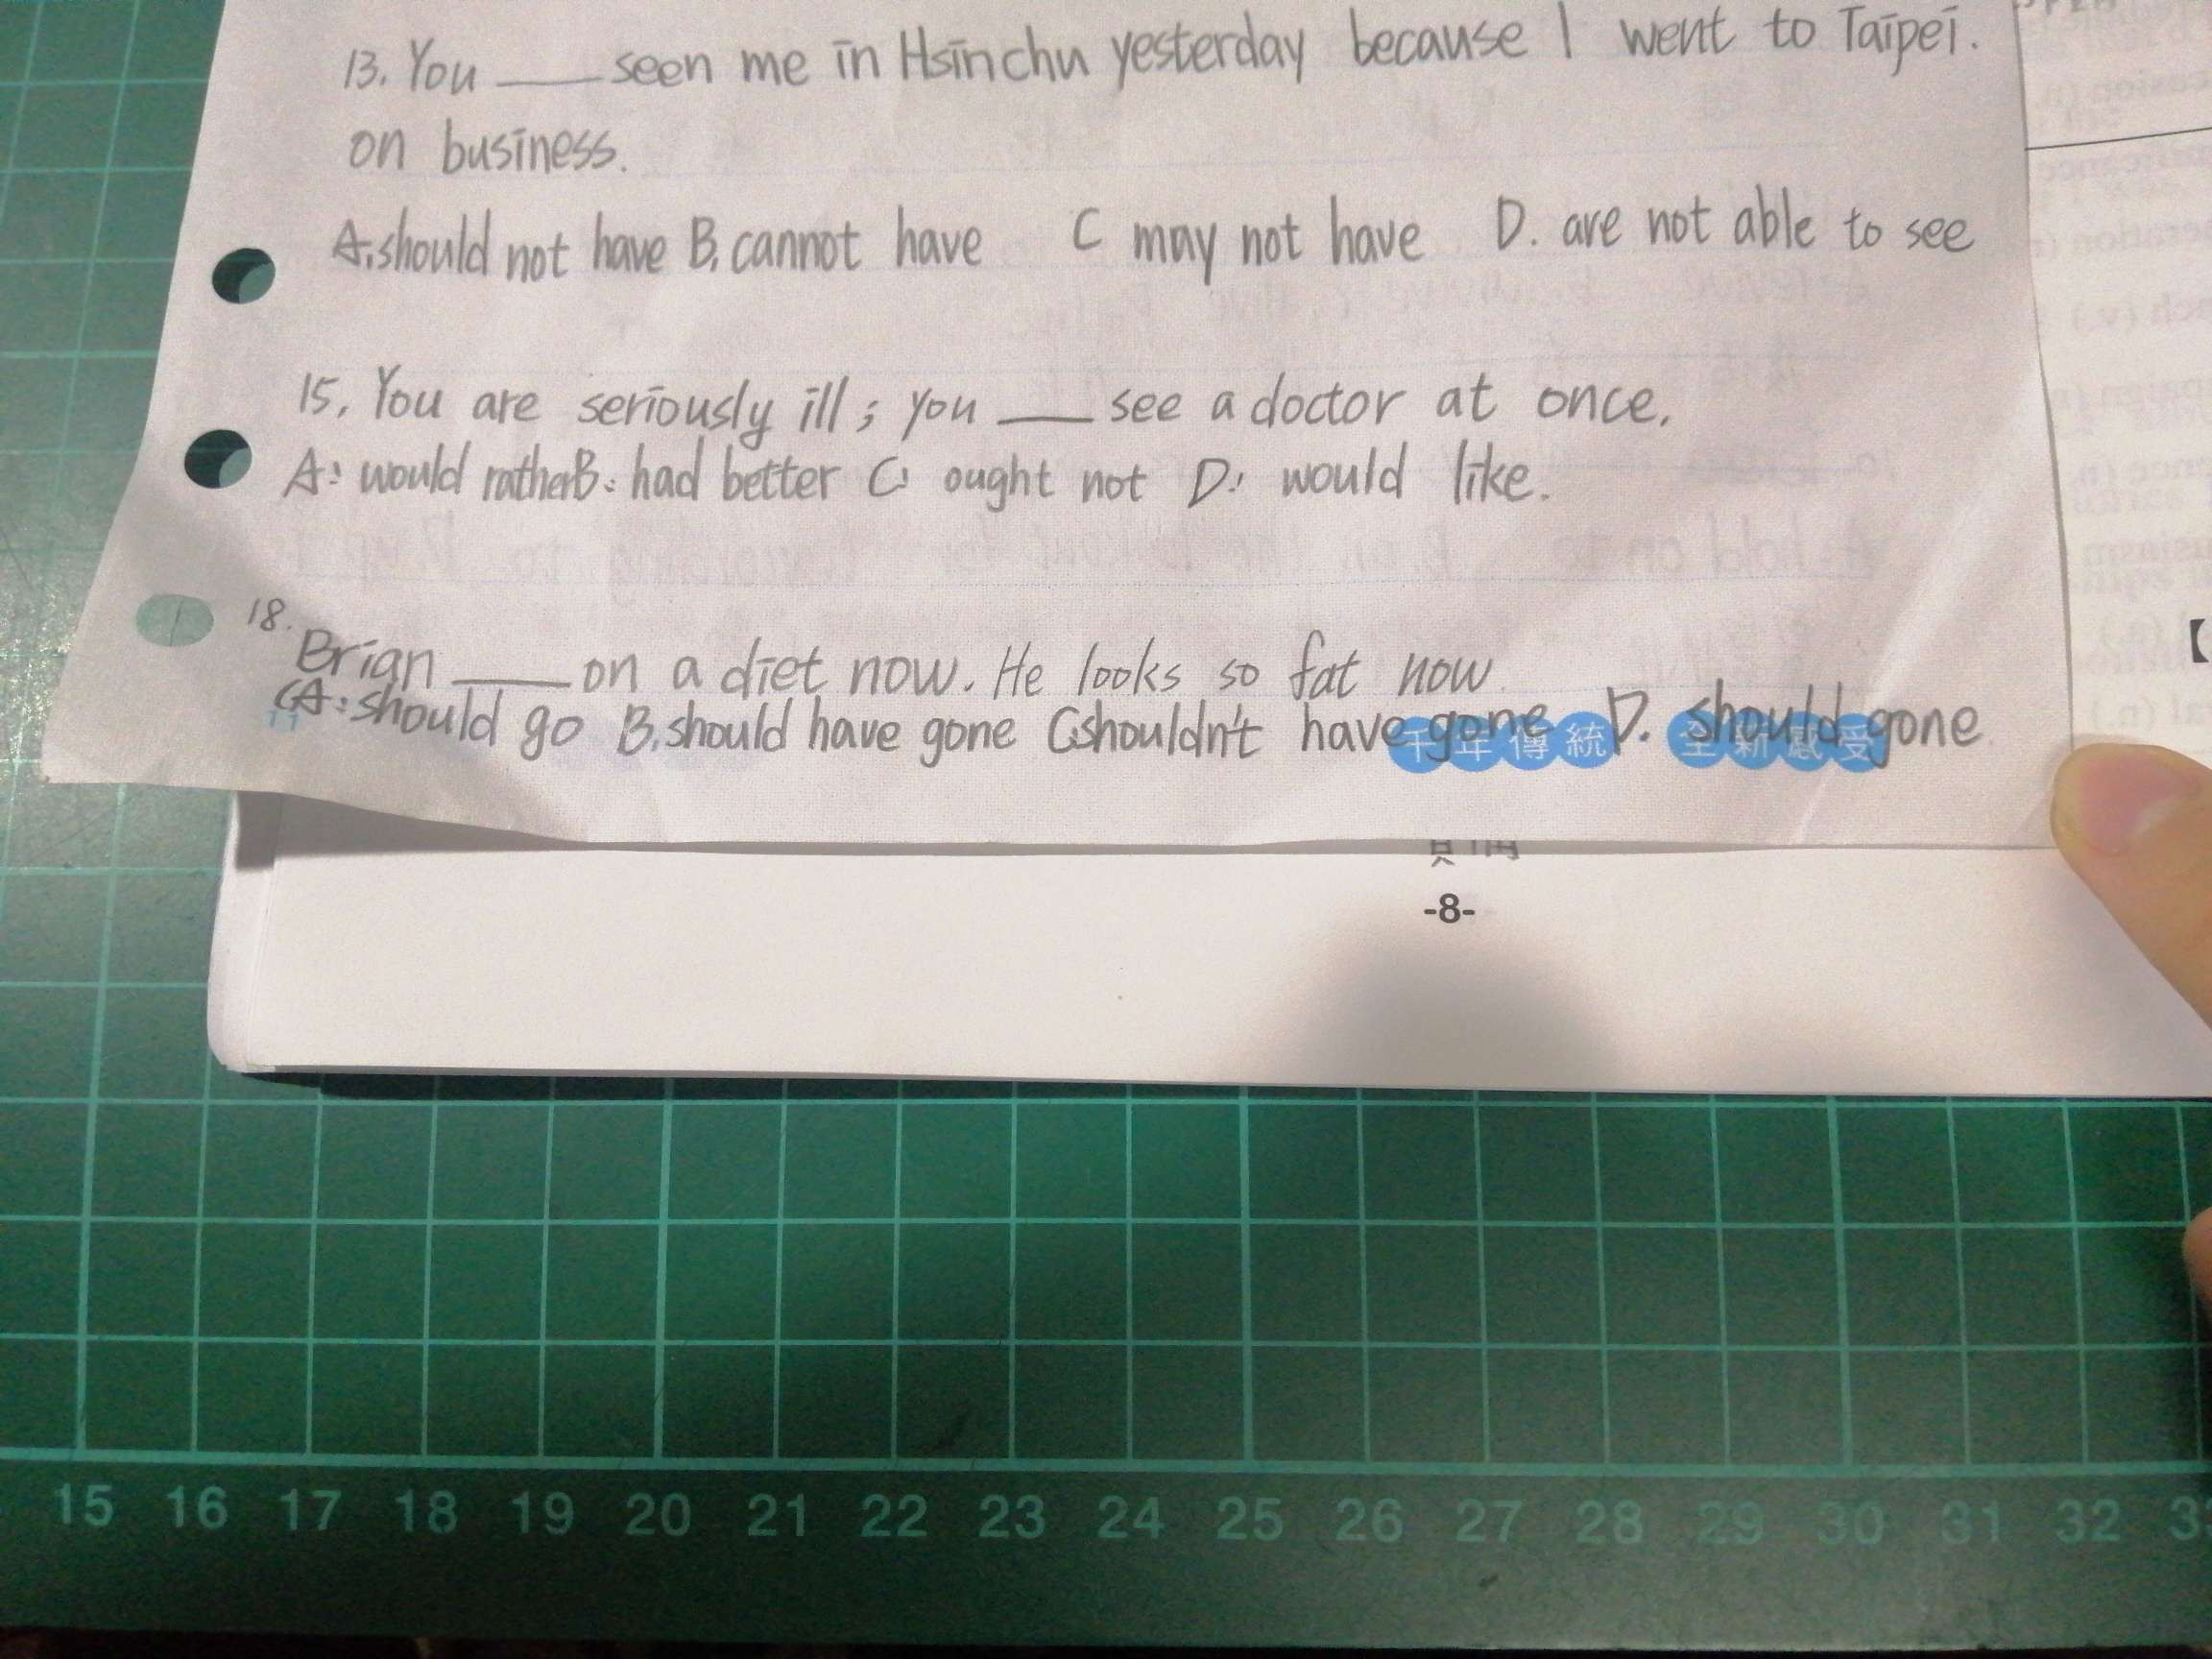 13. You ____ seen me in Hsinchu yesterday because I went to Taipei.
on business.
A. should not have B. cannot have C may not have D. are not able to see
15. You are seriously ill; you ____ see a doctor at once.
A: would rather B: had better C: ought not D: would like.
18.
Brian ____ on a diet now. He looks so fat now
(A: should go B. should have gone C. shouldn't have gone D. should gone
千年傳統 全新感受
-8-
15 16 17 18 19 20 21 22 23 24 25 26 27 28 29 30 31 32